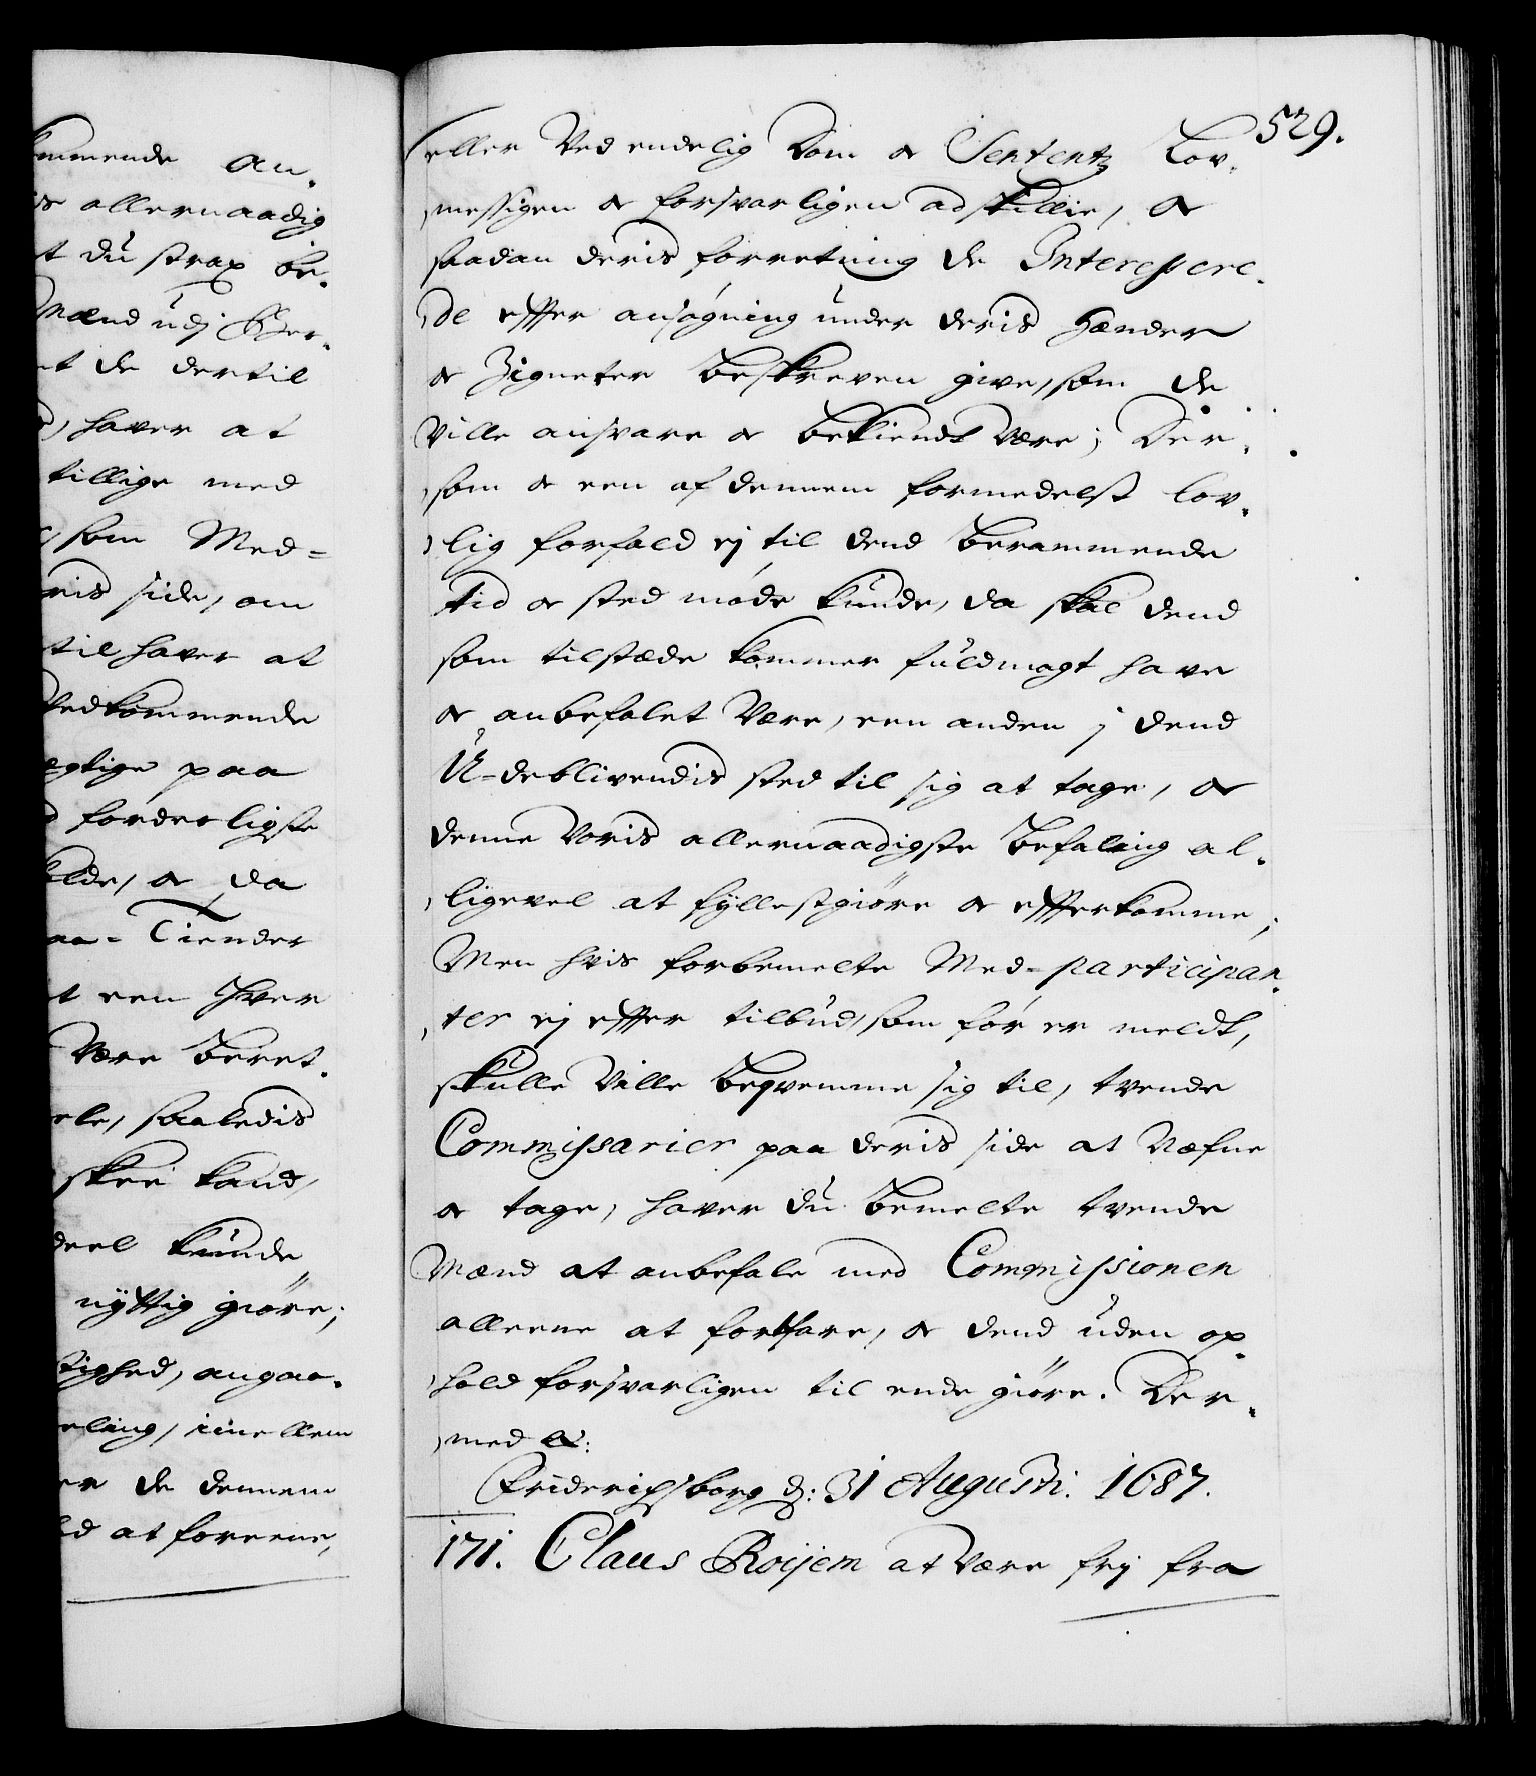 mmende an,
is allernaadig
t du strax be,
Mænd udj Ber,
nt de dertil
d, haver at
tillige med
som Med=
ris side, om
til haver at
Vedkommende
egtige paa
d forderligste
elde, & da
aa=Tiender
t een hver
Være beret,
ele, saaledis
skee kand,
deel kunde
nyttig giöre;
tighed, angaa,
eling, imellem
er de dennem
ld at foreene,
529.
eller Ved endelig Dom & Sententz Lov,
messigen & forsvarligen adskillie, &
saadan deris forretning de Interessere,
de effter ansögning under deris Hænder
& Zigneter beskreven give, som de
Ville ansvare & bekiendt Være; Der,
som & een af dennem formedelst lov,
lig forfald ej til dend berammende
tid & sted möde kunde, da skal dend
som tilstæde kommer fuldmagt have
& anbefalet Være, een anden j dend
U=deblivendis sted til sig at tage, &
denne Voris allernaadigste befaling al,
ligevel at fyllestgiöre & effterkomme;
Men hvis forbemelte Med=participan,
ter ej effter tilbud, som för er meldt,
skulle Ville beqvemme sig til, tvende
Commissarier paa deris side at Næfne
& tage, haver du bemelte tvende
Mænd at anbefale med Commissionen
alleene at fortfare, & dend uden op,
hold forsvarligen til ende giöre. Der,
med &:
Friderichsborg d: 31 Augusti. 1687.
171. Claus Roijem at Være frj fra